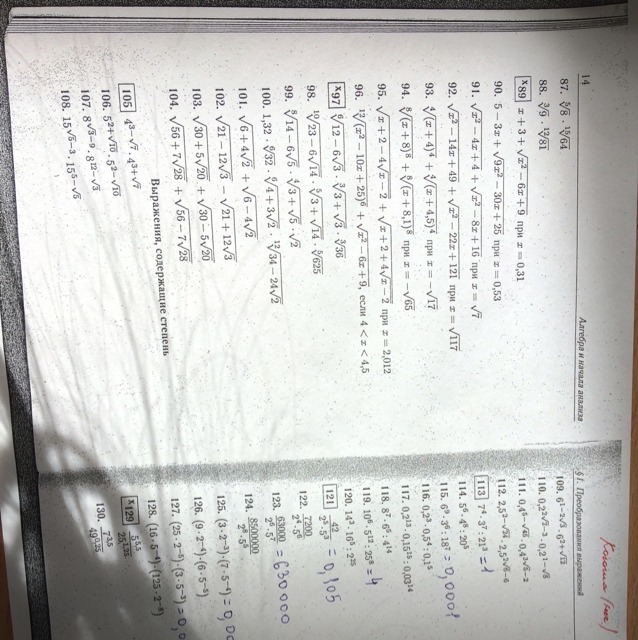 14 Алгебра и начала анализа
87. ⁵√8 · ¹⁵√64
88. ³√9 · ¹²√81
ˣ89 x + 3 + √(x² − 6x + 9) при x = 0,31
90. 5 − 3x + √(9x² − 30x + 25) при x = 0,53
91. √(x² − 4x + 4) + √(x² − 8x + 16) при x = √7
92. √(x² − 14x + 49) + √(x² − 22x + 121) при x = √117
93. ⁴√((x + 4)⁴) + ⁴√((x + 4,5)⁴) при x = −√17
94. ⁸√((x + 8)⁸) + ⁸√((x + 8,1)⁸) при x = −√65
95. √(x + 2 − 4√(x − 2)) + √(x + 2 + 4√(x − 2)) при x = 2,012
96. ¹²√((x² − 10x + 25)⁶) + √(x² − 6x + 9), если 4 < x < 4,5
ˣ97 ⁶√(12 − 6√3) · ³√(3 + √3) · ³√36
98. ¹⁰√(23 − 6√14) · ⁵√(3 + √14) · ⁵√625
99. ⁸√(14 − 6√5) · ⁴√(3 + √5) · √2
100. 1,32 · ⁶√32 · ⁶√(4 + 3√2) · ¹²√(34 − 24√2)
101. √(6 + 4√2) + √(6 − 4√2)
102. √(21 − 12√3) − √(21 + 12√3)
103. √(30 + 5√20) + √(30 − 5√20)
104. √(56 + 7√28) + √(56 − 7√28)
Выражения, содержащие степень
105 4^(3−√7) · 4^(3+√7)
106. 5^(2+√10) · 5^(2−√10)
107. 8^(√3−9) · 8^(12−√3)
108. 15^(√5−3) · 15^(5−√5)
§ 1. Преобразования выражений
110. 0,2^(2√8−3) · 0,2^(1−√8)
113 7⁴ · 3⁷ : 21³ = 1
114. 5⁶ · 4⁸ : 20⁵
115. 6⁹ · 3⁶ : 18⁷ = 0,0001
117. 0,2¹³ · 0,15¹³ : 0,03¹⁴
118. 8⁷ · 6⁵ : 4¹⁴
119. 10⁶ · 5¹³ : 25⁸ = 4
120. 14³ · 16⁵ : 2²⁵
121 = 0,105
122. 7200
123. 63000 = 630000
124. 8500000
125. (3 · 2⁻³) · (7 · 5⁻⁴) = 0,0
126. (9 · 2⁻⁴) · (6 · 5⁻⁵)
127. (25 · 2⁻⁵) · (3 · 5⁻³) = 0,0
128. (16 · 5⁻⁴) · (125 · 2⁻⁸)
ˣ129
130.